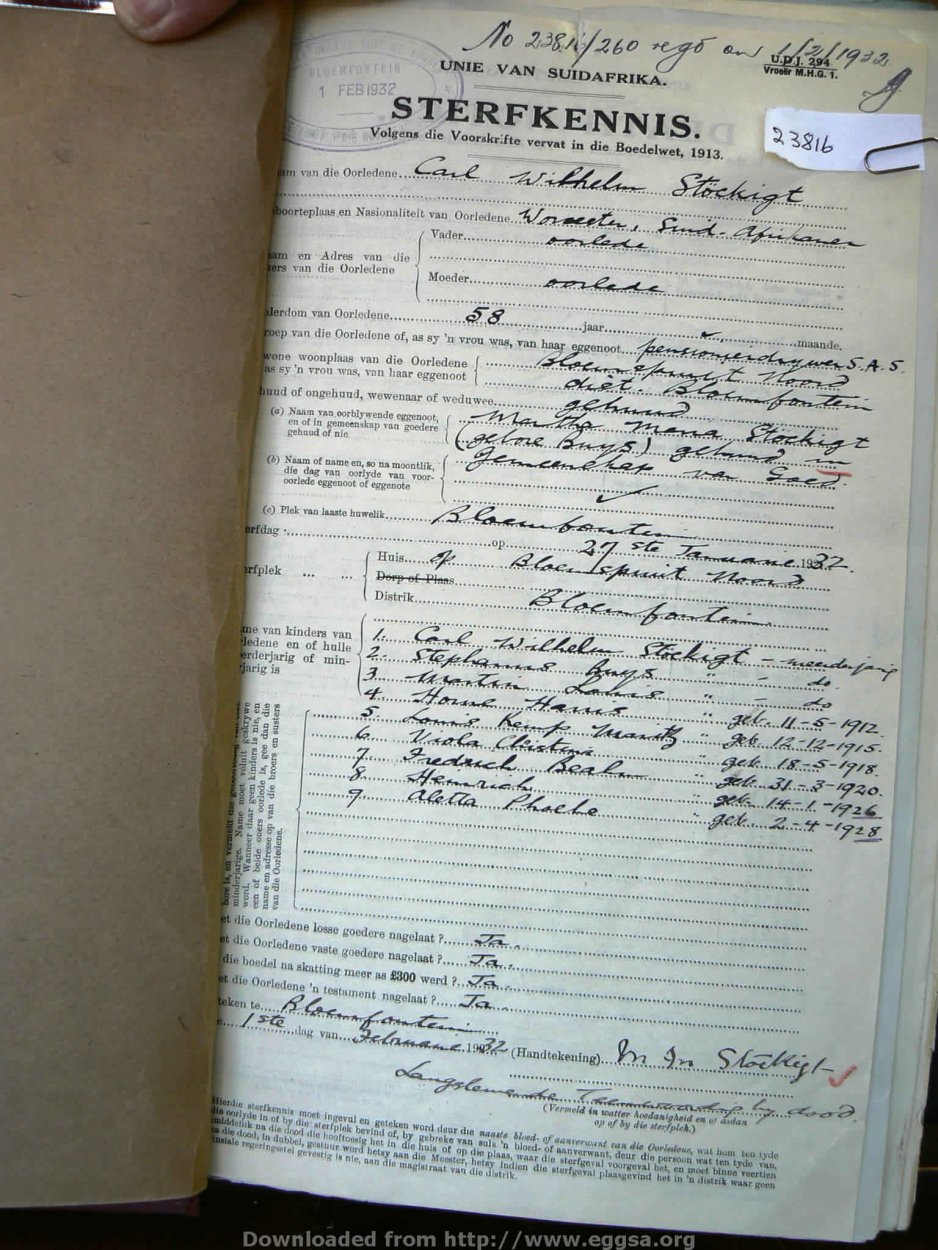 No 23816/260 regd on 1/2/1932
U.D.J. 294
Vroeër M.H.G. 1.
UNIE VAN SUIDAFRIKA.
BLOEMFONTEIN
1 FEB 1932
STERFKENNIS.
Volgens die Voorskrifte vervat in die Boedelwet, 1913.
23816
van die Oorledene Carl Wilhelm Stöckigt
boorteplaas en Nasionaliteit van Oorledene Worcester, Suid-Afrikaner
Vader oorlede
en Adres van die
van die Oorledene
Moeder oorlede
derdom van Oorledene 58 jaar maande.
roep van die Oorledene of, as sy 'n vrou was, van haar eggenoot pensioenierdrywer S.A.S.
wone woonplaas van die Oorledene
as sy 'n vrou was, van haar eggenoot
Bloemspruit Noord
dist. Bloemfontein
huud of ongehuud, wewenaar of weduwee gehuud
(a) Naam van oorblywende eggenoot,
en of in gemeenskap van goedere
gehuud of nie
Martha Maria Stöckigt
(gebore Buys) gehuud in
Gemeenskap van Goed.
(b) Naam of name en, so na moontlik,
die dag van oorlyde van voor-
oorlede eggenoot of eggenote
(c) Plek van laaste huwelik Bloemfontein
erfdag op 27ste Januarie 1932.
erfplek
Huis op Bloemspruit Noord
Dorp of Plaas
Distrik Bloemfontein
me van kinders van
ledene en of hulle
erderjarig of min-
jarig is
1. Carl Wilhelm Stöckigt – meerderjarig
2. Stephanus Buys " – do
3. Martin Louis " – do
4. Harris " geb. 11-5-1912
5. Louis Kemp Maritz " geb. 12-12-1915.
6. Viola Christina " geb. 18-5-1918
7. Fredrich " geb. 31-3-1920.
8. Heinrich " geb. 14-1-1926
9. Aletta Phoebe " geb. 2-4-1928
minderjarige. Name moet voluit geskrywe
word. Wanneer daar geen kinders is nie, en
een of beide ouers oorlede is, gee dan die
name en adresse op van die broers en susters
van die Oorledene.
et die Oorledene losse goedere nagelaat ? Ja.
et die Oorledene vaste goedere nagelaat ? Ja.
die boedel na skatting meer as £300 werd ? Ja.
et die Oorledene 'n testament nagelaat ? Ja
teken te Bloemfontein
1ste dag van Februarie 1932 (Handtekening) M M Stöckigt
Langslewende by dood.
(Vermeld in watter hoedanigheid en of aldan
op of by die sterfplek.)
Hierdie sterfkennis moet ingevul en geteken word deur die naaste bloed- of aanverwant van die Oorledene, wat hom ten tyde
die oorlyde in of by die sterfplek bevind of, by gebreke van sulk 'n bloed- of aanverwant, deur die persoon wat ten tyde van,
middellik na die dood die hooftoesig het in die huis of op die plaas, waar die sterfgeval voorgeval het, en moet binne veertien
na die dood, in dubbel, gestuur word hetsy aan die Meester, hetsy indien die sterfgeval plaasgevind het in 'n distrik waar geen
insiale regeringsetel gevestig is nie, aan die magistraat van die distrik.
Downloaded from http://www.eggsa.org